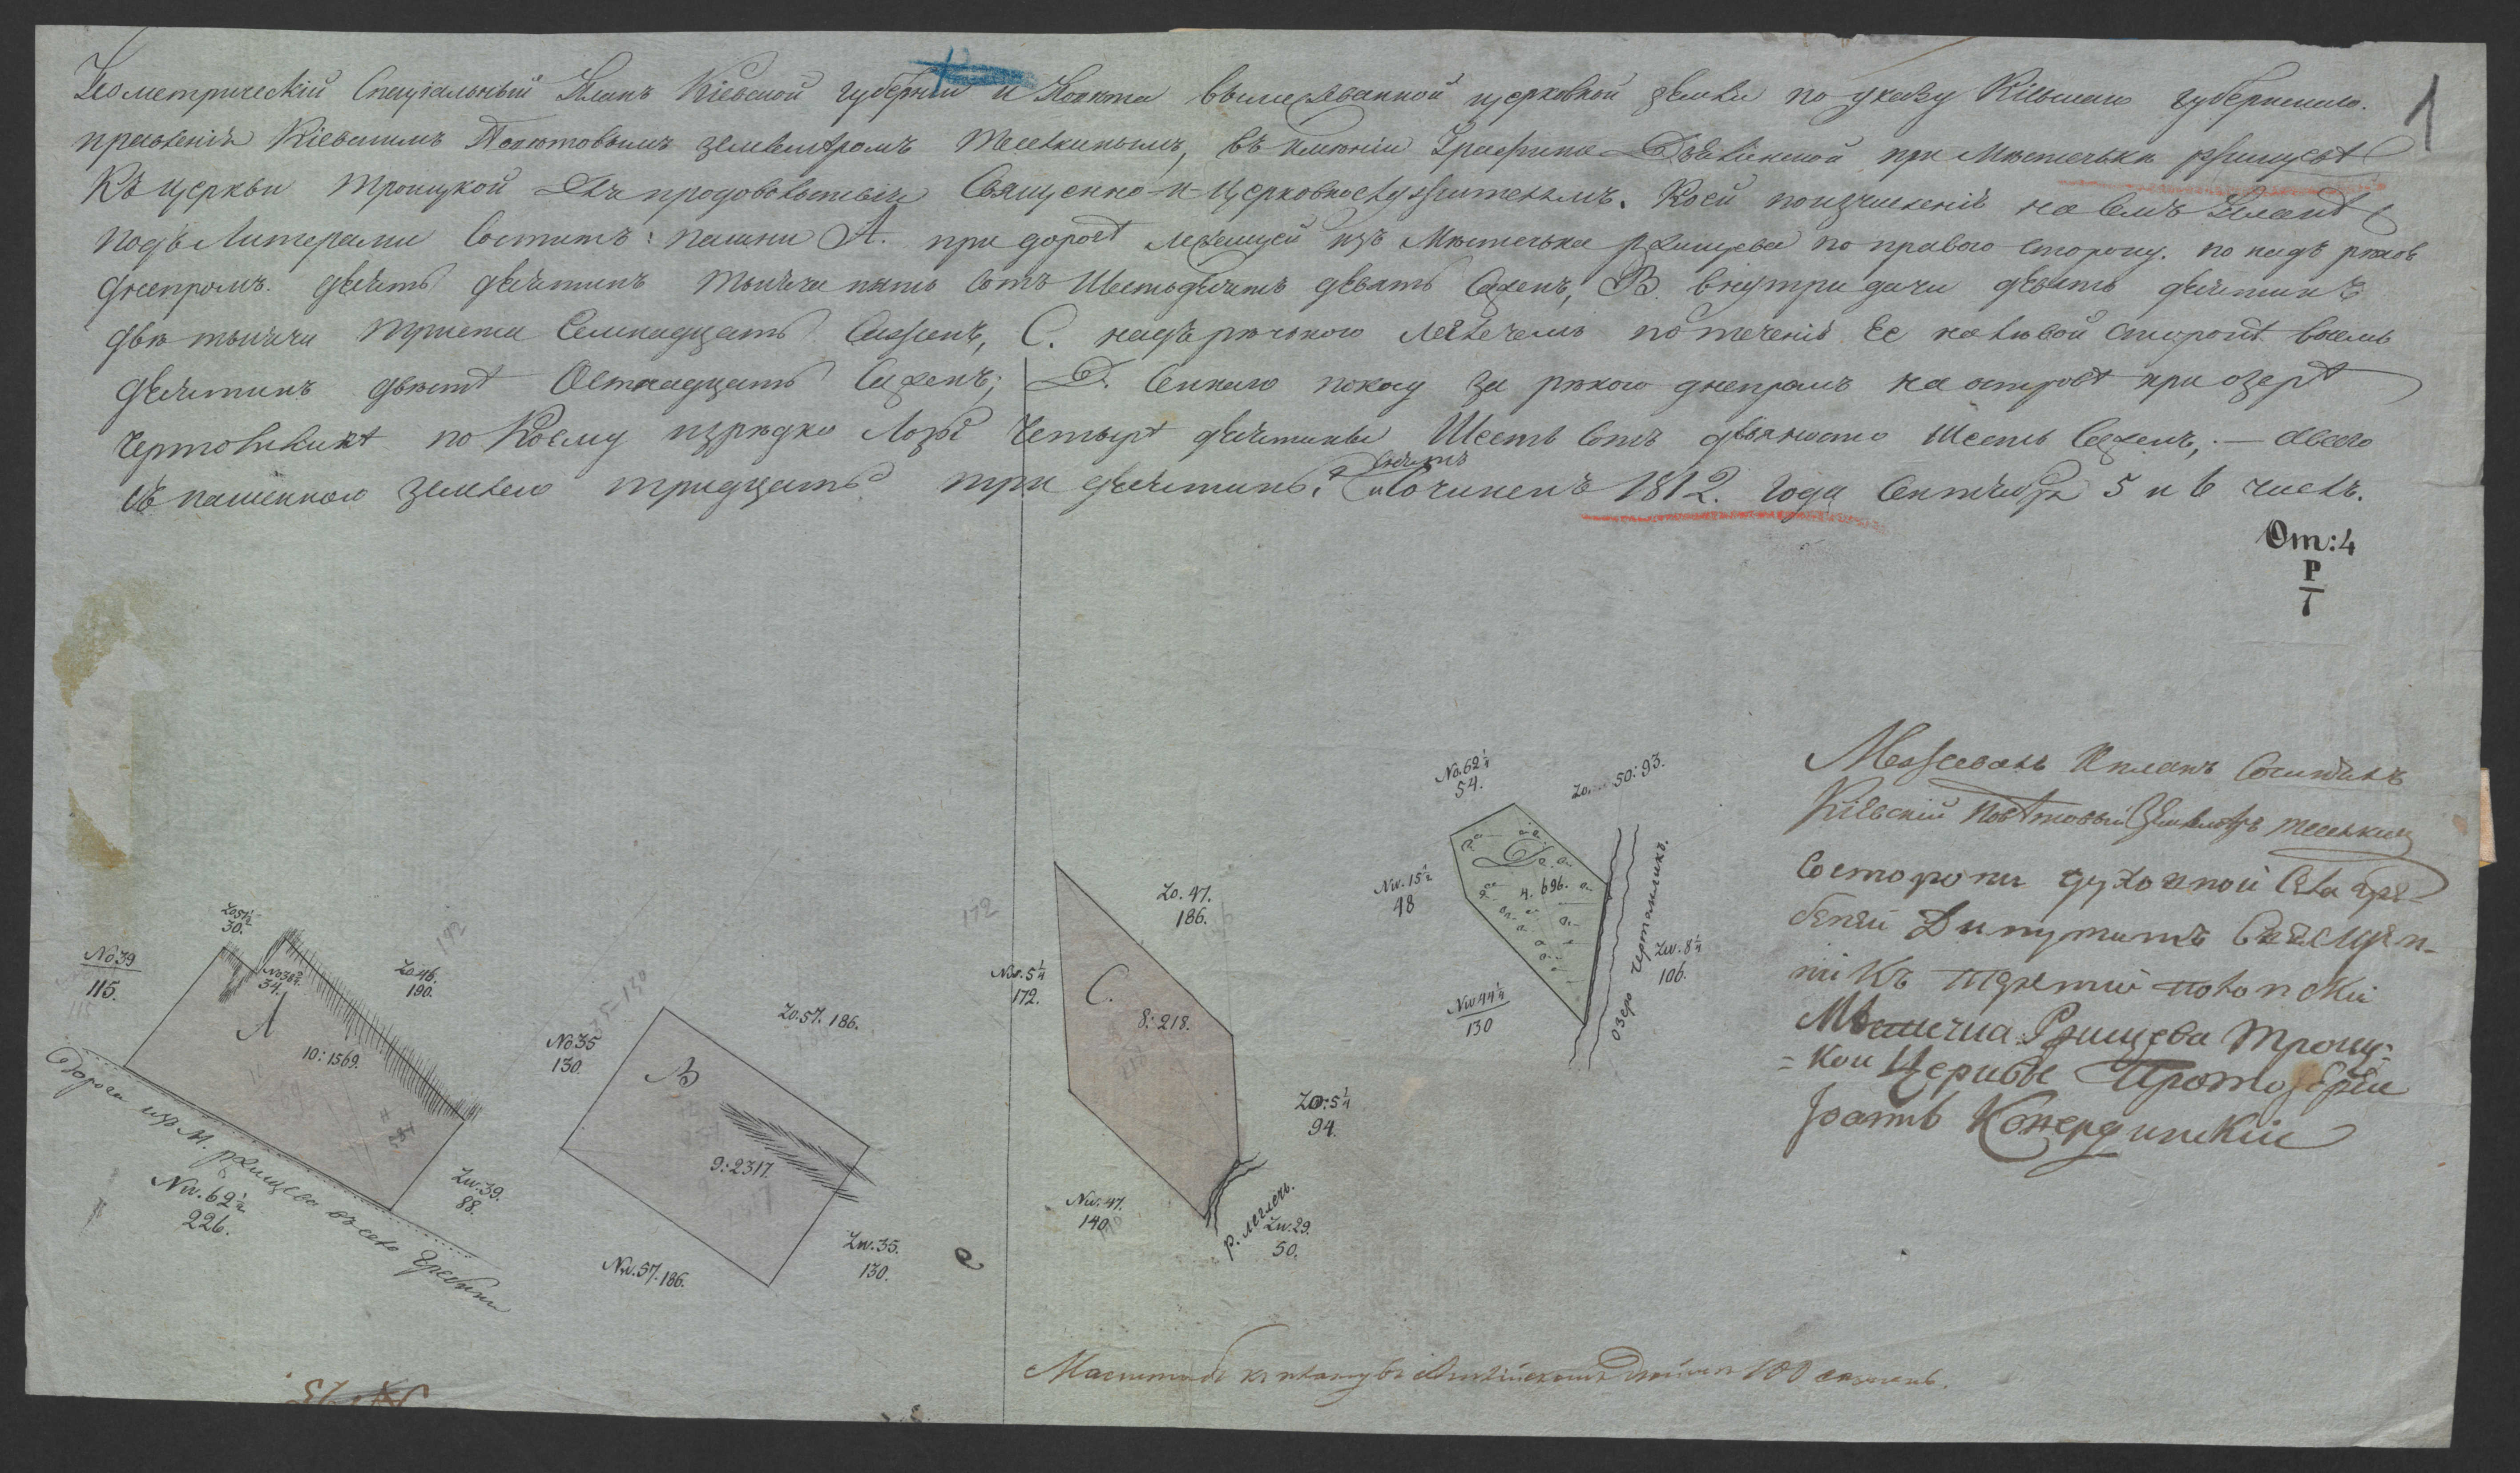 Геометрическій Специальный Планъ Кіевской губерніи и Повѣта вымежеванной церковной земли по указу Кіевскаго губернскаго.
правленія Кіевскимъ Повѣтовымъ землемѣромъ въ имѣніи Графини при Мѣстечькѣ ржищевѣ
Къ церкви Троицкой Для продовольствія Священно-и-Церковнослужителямъ. Коей по изчисленію на семъ Планѣ
подъ Литерами Состоитъ: пашни А. при дорогѣ лежащей изъ Мѣстечька ржищева по правою сторону. по надъ рѣкою
Днепромъ. десять десятинъ тысяча пять сотъ Шестьдесятъ девять Сажень, В. внутри дачи девять десятинъ
двѣ тысячи триста Семнадцать Сажень, С. надъ рѣчькою Леглечемъ по теченію Ее на лѣвой сторонѣ восемь
десятинъ двѣстѣ Осмнадцать Сажень; D. Сеннаго покосу за рѣкою днепромъ на островѣ при озерѣ
Чертовикѣ по Коему изрѣдка Лозы Четырѣ десятины Шесть Сотъ девяносто Шесть Сажень, .— а всего
съ пашенною землею тридцать три десятины, Сочиненъ 1812. года Сентября 5 и 6 числъ.
1
От: 4
Р
7
Zo 51½
30.
No 39
115.
34.
Zo 46.
190.
А
10: 1569.
Дорога изъ М. ржищева въ село Гребени
Nw. 62½
226.
Zw. 39.
88.
192
No 35
130.
Zo. 57. 186.
В
9: 2317.
Nw. 57. 186.
Zw. 35.
130.
172
Nw. 5¼
172.
Zo. 47.
186.
С.
8: 218.
Zo: 5¼
94.
Nw. 47.
140.
р. леглечь.
Zw. 29.
50.
No. 62¼
54.
Zo. 50: 93.
Nw. 15½
48
D.
4. 696.
Nw 44¼
130
озеро
Zw. 8¼
106.
Межевалъ И планъ Сочинялъ
Кіевскій Повѣтовый Землемѣръ
Состороны духовной Села Гре-
бѣней Дипутатъ Священ-
никъ
Мѣстечка Ржищева Троиц-
= кой Церкви Протоіерей
Іоаннъ
Масштабъ къ плану въ Англійскомъ Дюймѣ 100 сажень.